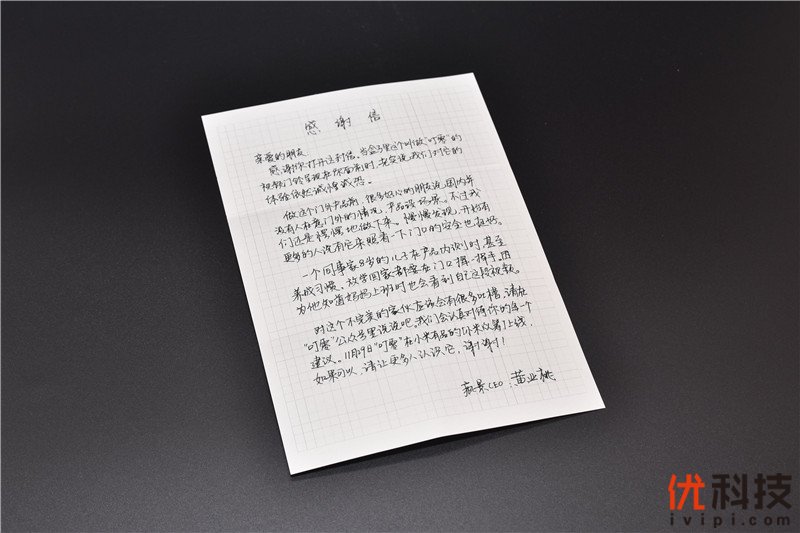 感谢信
亲爱的朋友
感谢你打开这封信。当盒子里这个叫做“叮零”的
视频门铃呈现在你面前时,老实说,我们对它的
体验依然诚惶诚恐。
做这个门外产品前,很多好心的朋友说,国内并
没有人在意门外的情况,产品没市场。不过我
们还是慢慢地做下来。慢慢发现,开始有
更多的人说有它来照看一下门口的安全也挺好。
一个同事家8岁的儿子在产品内测时,甚至
养成习惯,放学回家都要在门口挥一挥手,因
为他知道妈妈上班时也会看到自己这段视频。
对这个不完美的家伙应该会有很多吐槽,请在
“叮零”公众号里说说吧。我们会认真对待你的每一个
建议。11月29日“叮零”在小米有品的小米众筹上线,
如果可以,请让更多人认识它,谢谢!
CEO:黄业桃
优科技
ivipi.com